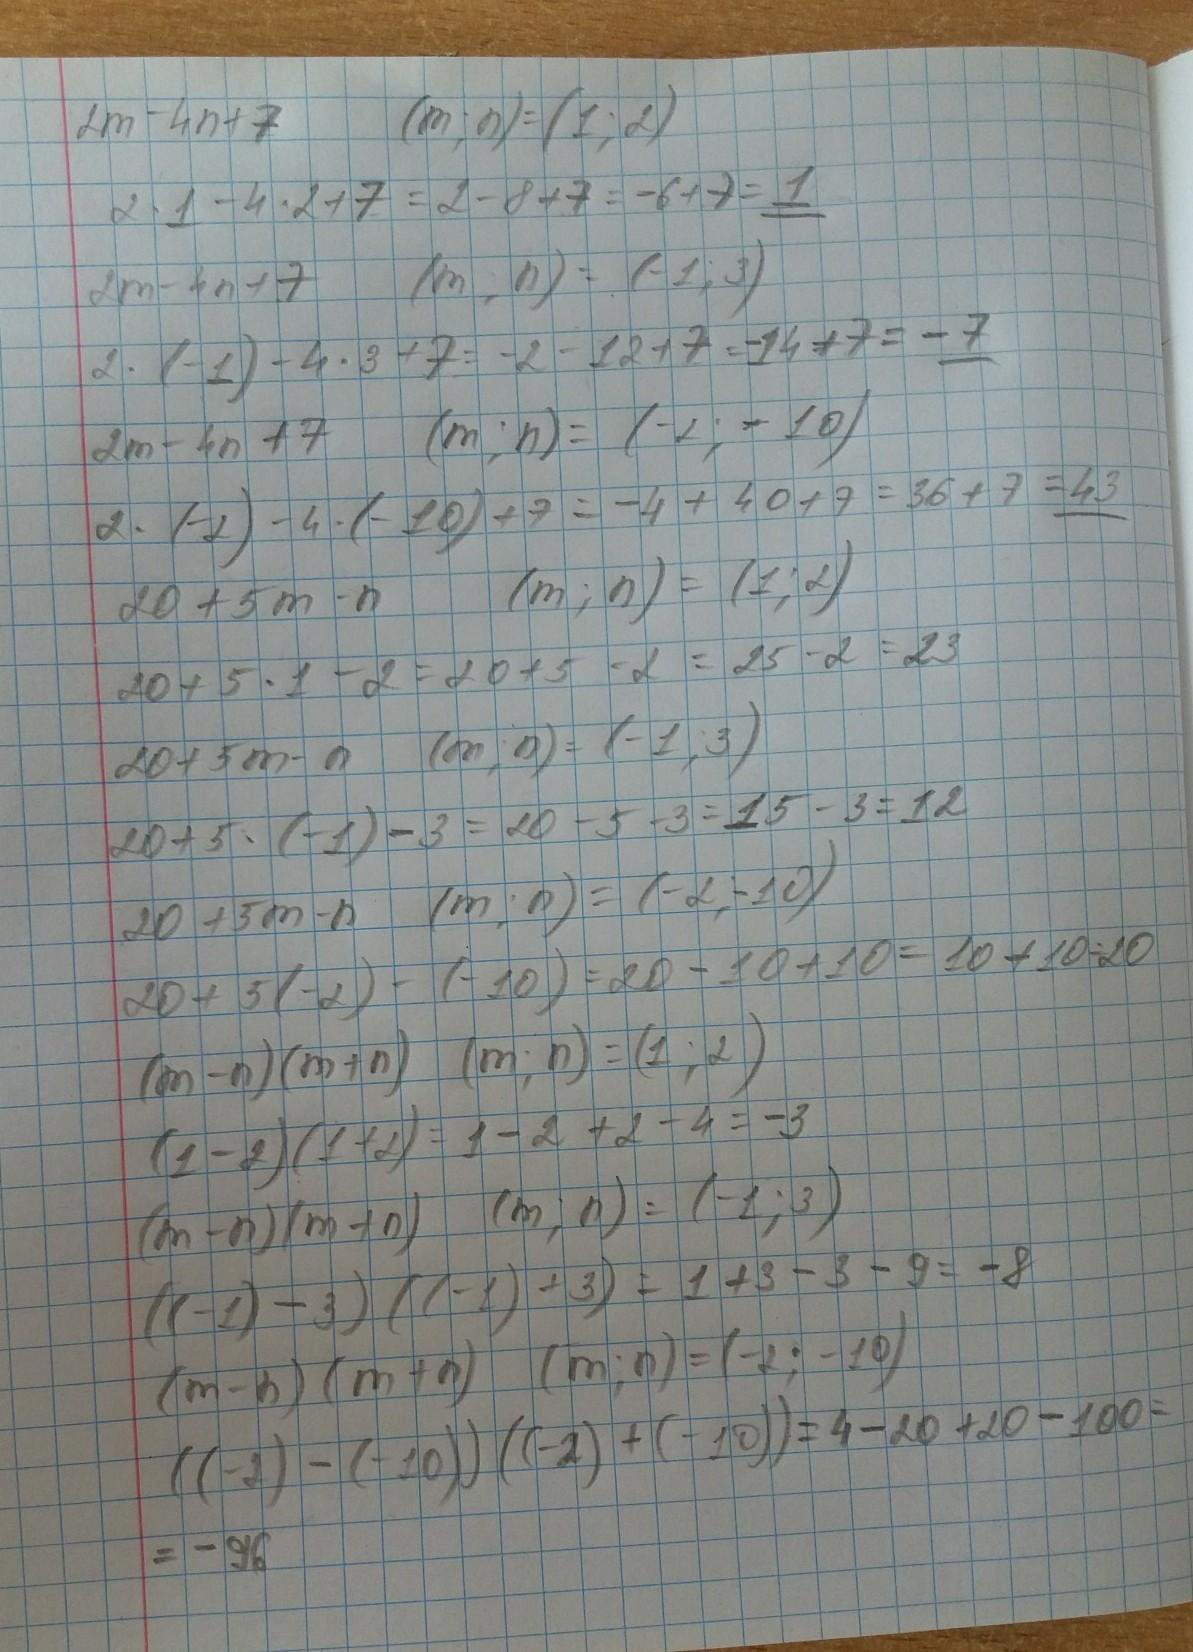 2m-4n+7 (m;n)=(1;2)
2·1-4·2+7=2-8+7=-6+7=1
2m-4n+7 (m;n)=(-1;3)
2·(-1)-4·3+7=-2-12+7=-14+7=-7
2m-4n+7 (m;n)=(-2;-10)
2·(-2)-4·(-10)+7=-4+40+7=36+7=43
20+5m-n (m;n)=(1;2)
20+5·1-2=20+5-2=25-2=23
20+5m-n (m;n)=(-1;3)
20+5·(-1)-3=20-5-3=15-3=12
20+5m-n (m;n)=(-2;-10)
20+5(-2)-(-10)=20-10+10=10+10=20
(m-n)(m+n) (m;n)=(1;2)
(1-2)(1+2)=1-2+2-4=-3
(m-n)(m+n) (m;n)=(-1;3)
((-1)-3)((-1)+3)=1+3-3-9=-8
(m-n)(m+n) (m;n)=(-2;-10)
((-2)-(-10))((-2)+(-10))=4-20+20-100=
=-96